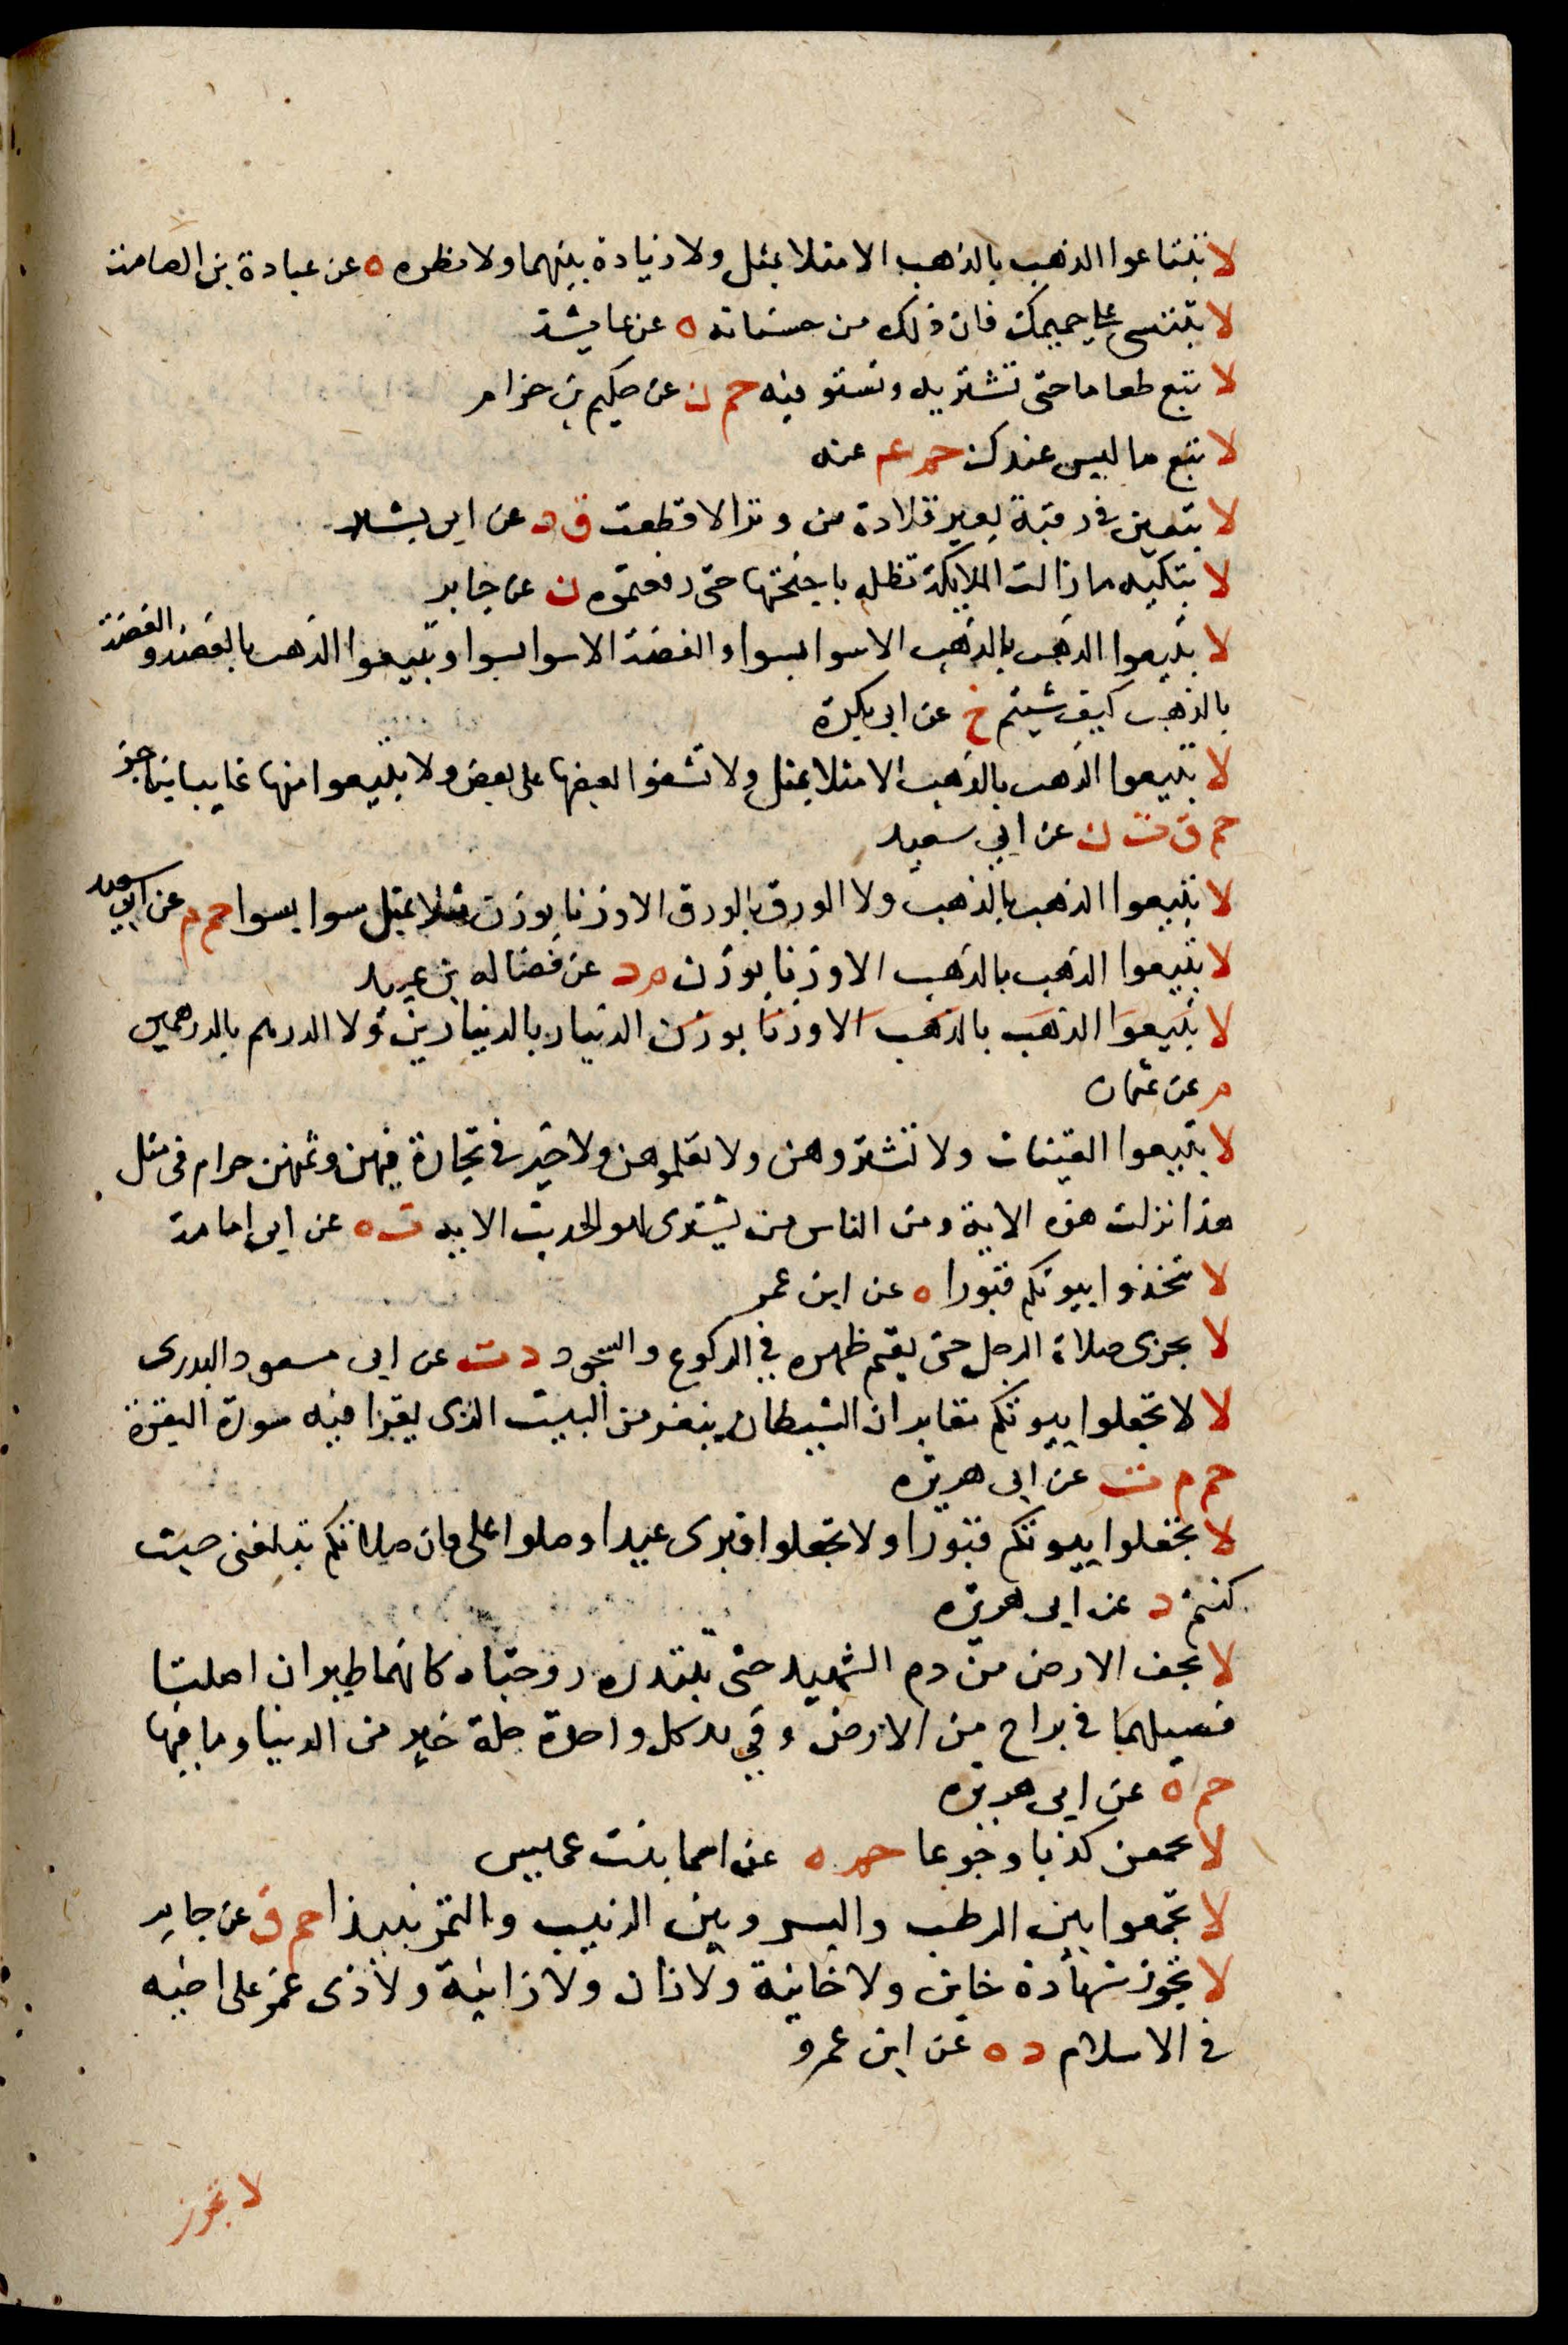 لا تبتاعوا الذهب بالذهب الا مثلا بمثل ولا زيادة بينهما ولا نظره ه عن عبادة بن الصامت
لا تبتئسى على حميمك فان ذلك من حسناته ه عن عايشة
لا تبع طعاما حتى تشتريه وتستوفيه حم ن عن حكيم بن حزام
لا تبع ما ليس عندك حم عم عنه
لا تبقين فى رقبة بعير قلادة من وتر الا قطعت ق د عن ابى بشير
لا تبكيه ما زالت الملايكة تظله باجنحتها حتى رفعتموه ن عن جابر
لا تبيعوا الذهب بالذهب الا سوا بسوا والفضة الا سوا بسوا وبيعوا الذهب بالفضة والفضة
بالذهب كيف شيتم خ عن ابى بكرة
لا تبيعوا الذهب بالذهب الا مثلا بمثل ولا تشفوا بعضها على بعض ولا تبيعوا منها غايبا بناجز
حم ق ت ن عن ابى سعيد
لا تبيعوا الذهب بالذهب ولا الورق بالورق الا وزنا بوزن مثلا بمثل سوا بسوا حم م عن ابى سعيد
لا تبيعوا الذهب بالذهب الا وزنا بوزن م د عن فضاله بن عبيد
لا تبيعوا الذهب بالذهب الا وزنا بوزن الدنيار بالدنيارين ولا الدرهم بالدرهمين
م عن عثمان
لا تبيعوا القينات ولا تشتروهن ولا تعلموهن ولا خير فى تجارة فيهن وثمنهن حرام فى مثل
هذا نزلت هذه الاية ومن الناس من يشترى لهو الحديث الايه ت ه عن ابى امامة
لا تتخذوا بيوتكم قبورا ه عن ابن عمر
لا تجزى صلاة الرجل حتى يقيم ظهره فى الركوع والسجود د ت عن ابى مسعود البدرى
لا لا تجعلوا بيوتكم مقابر ان الشيطان ينفر من البيت الذى يقرا فيه سورة البقرة
حم م ت عن ابى هريره
لا تجعلوا بيوتكم قبورا ولا تجعلوا قبرى عيدا وصلوا على فان صلاتكم تبلغنى حيث
كنتم د عن ابى هريره
لا تجف الارض من دم الشهيد حتى تبتدره زوجتاه كانهما طيران اضلتا
فصيلهما فى براح من الارض وفى يد كل واحدة حلة خير من الدنيا وما فيها
حم ه عن ابى هريره
لا تجمعن كذبا وجوعا حم ه عن اسما بنت عميس
لا تجمعوا بين الرطب والبسر وبين الزبيب والتمر نبيذا حم ق عن جابر
لا تجوز شهادة خاين ولا خاينة ولا زان ولا زانية ولا ذى غمز على اخيه
فى الاسلام د ه عن ابن عمرو
لا تجوز